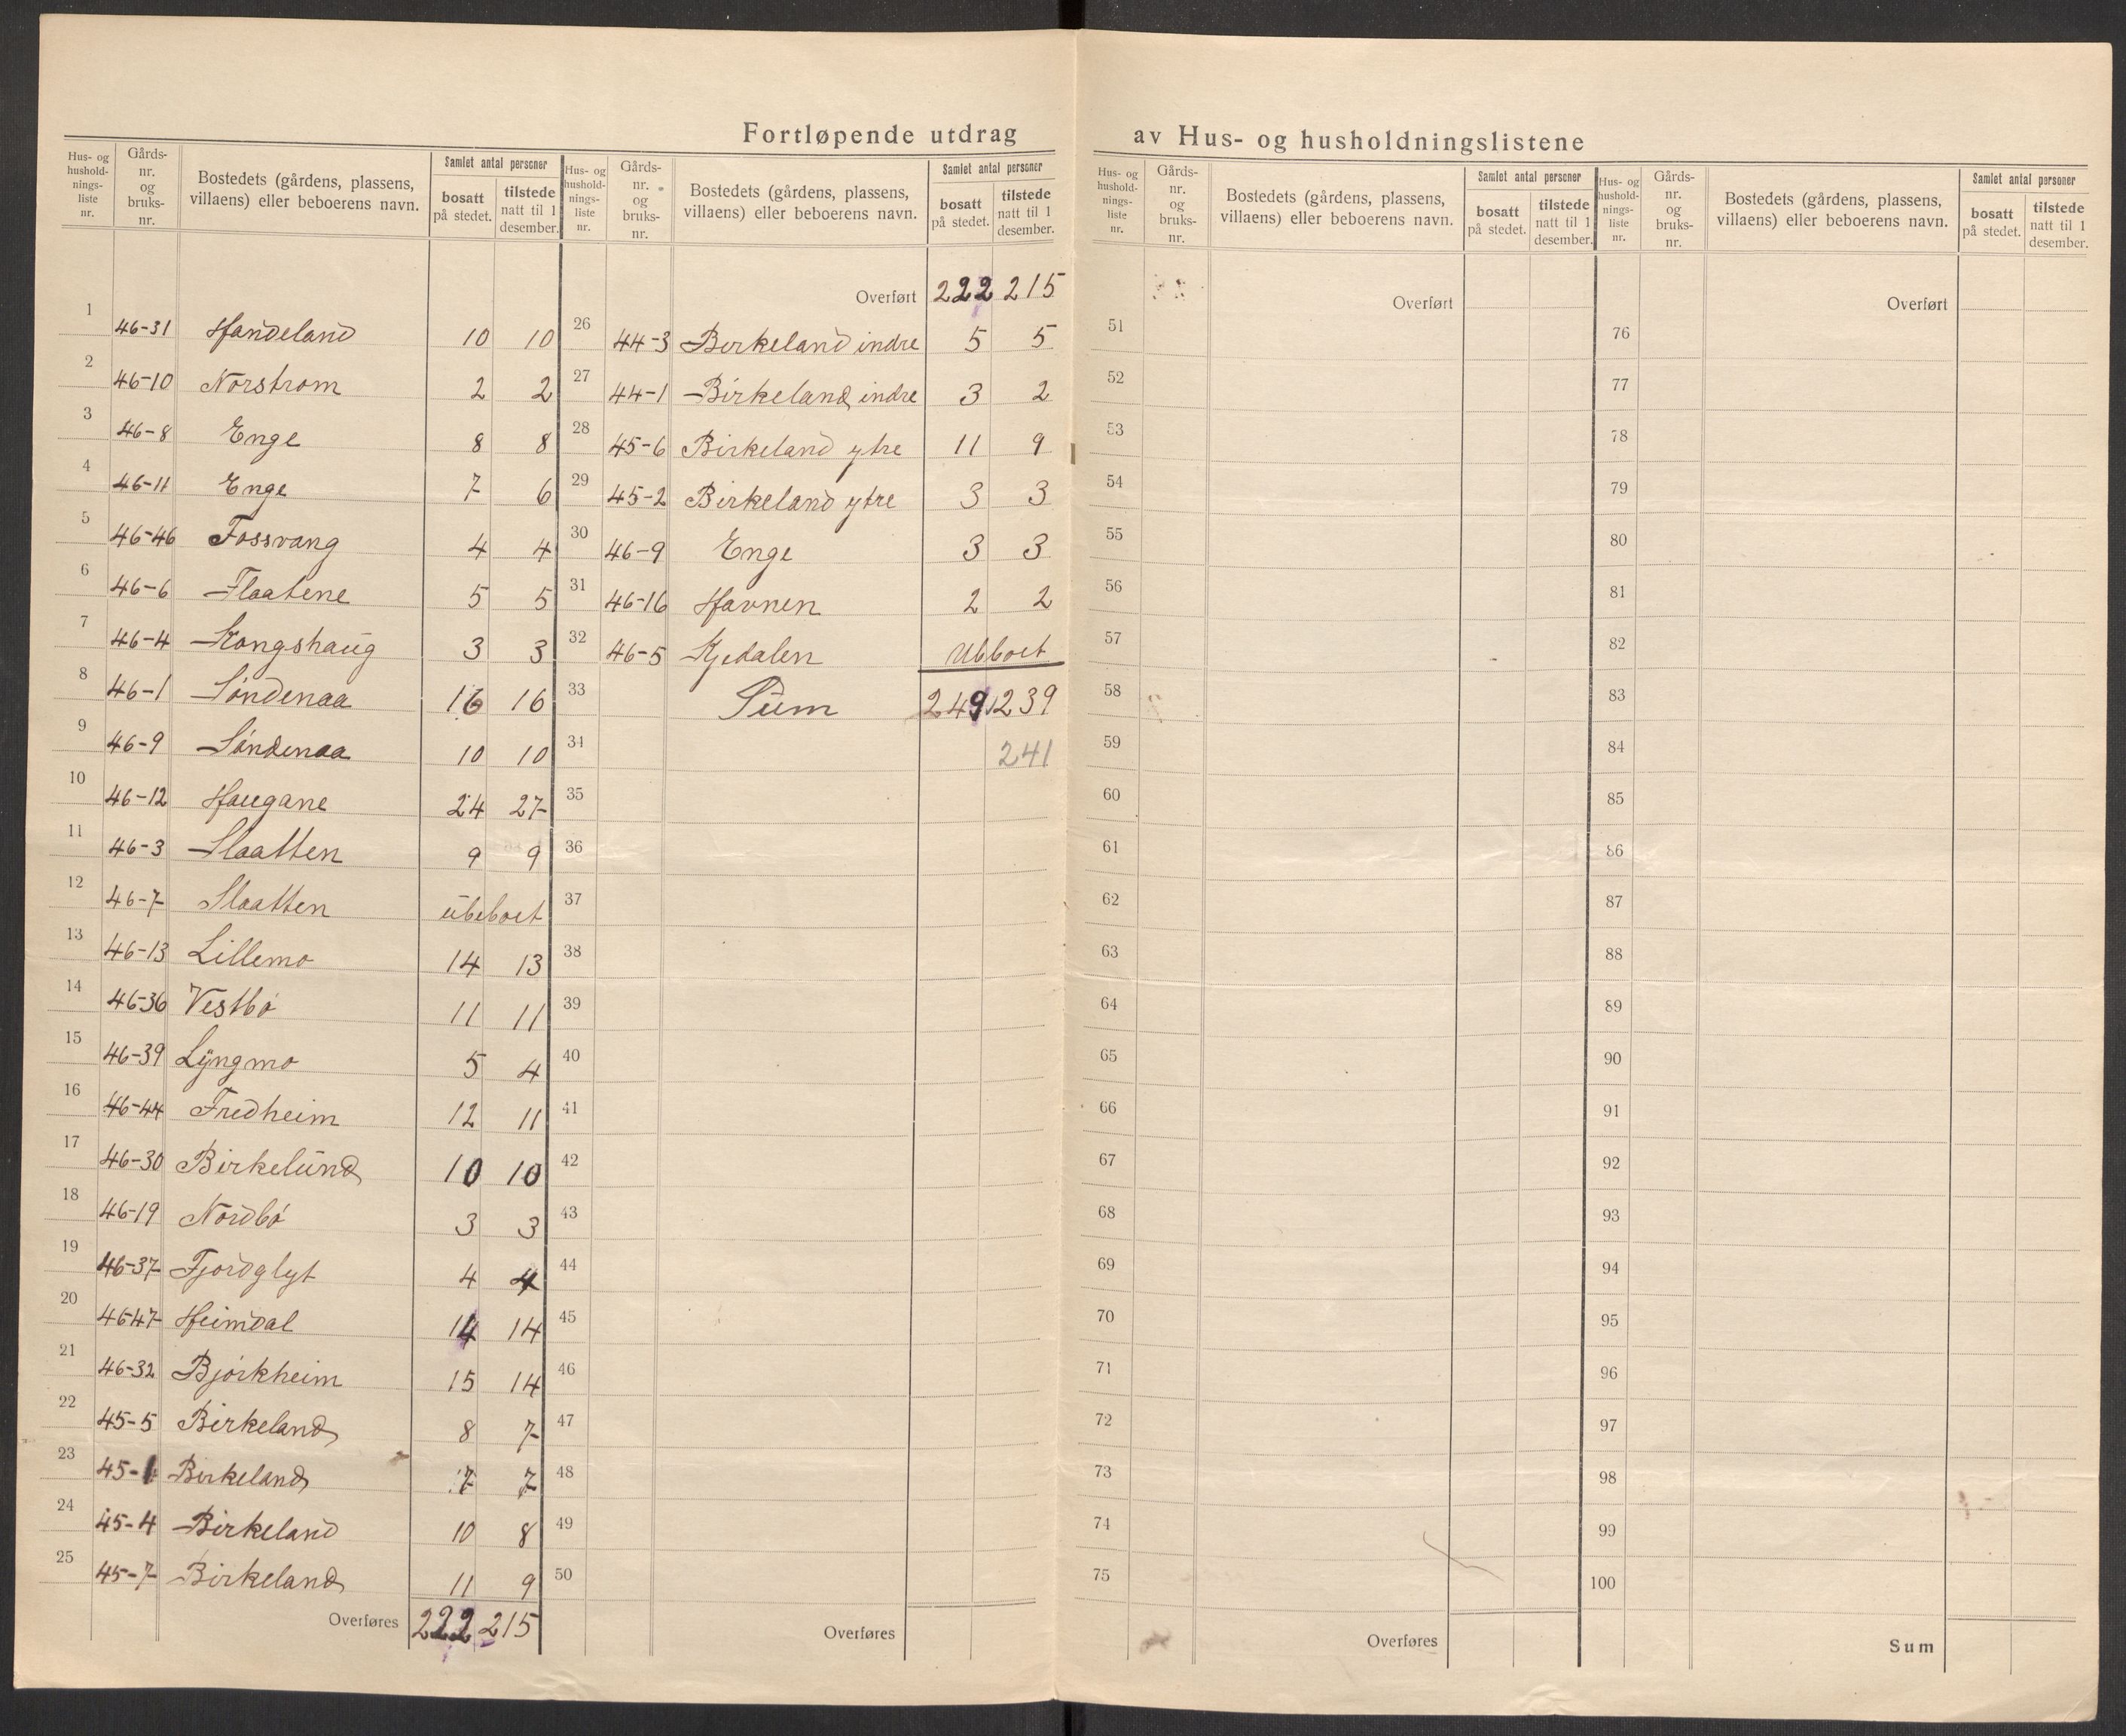 Fortløpende utdrag av Hus- og husholdningslistene
Hus- og husholdnings-liste nr. | Gårds-nr. og bruks-nr. | Bostedets (gårdens, plassens, villaens) eller beboerens navn. | Samlet antal personer | bosatt på stedet. | tilstede natt til 1 desember.
1 46-31 Handeland 10 10
2 46-10 Norstrøm 2 2
3 46-8 Enge 8 8
4 46-11 Enge 7 6
5 46-46 Fossvang 4 4
6 46-6 Flaatene 5 5
7 46-4 Kongshaug 3 3
8 46-1 Søndenaa 16 16
9 46-9 Søndenaa 10 10
10 46-12 Haugane 24 27
11 46-3 Slaatten 9 9
12 46-7 Slaatten ubeboet
13 46-13 Lillemo 14 13
14 46-36 Vestbø 11 11
15 46-39 Lyngmo 5 4
16 46-44 Fredheim 12 11
17 46-30 Birkelund 10 10
18 46-19 Nordbø 3 3
19 46-37 Fjordglyt 4 4
20 46-47 Heimdal 14 14
21 46-32 Bjørkheim 15 14
22 45-5 Birkeland 8 7
23 45-1 Birkeland 7 7
24 45-4 Birkeland 10 8
25 45-7 Birkeland 11 9
Overføres 222 215
Hus- og hushold-nings-liste nr. | Gårds-nr. og bruks-nr. | Bostedets (gårdens, plassens, villaens) eller beboerens navn. | Samlet antal personer | bosatt på stedet. | tilstede natt til 1 desember.
Overført 222 215
26 44-3 Birkeland indre 5 5
27 44-1 Birkeland indre 3 2
28 45-6 Birkeland ytre 11 9
29 45-2 Birkeland ytre 3 3
30 46-9 Enge 3 3
31 46-16 Havnen 2 2
32 46-5 Kjedalen Ubboet
33 Sum 249 239
34 241
35
36
37
38
39
40
41
42
43
44
45
46
47
48
49
50
Overføres
Hus- og hushold-nings-liste nr. | Gårds-nr. og bruks-nr. | Bostedets (gårdens, plassens, villaens) eller beboerens navn. | Samlet antal personer | bosatt på stedet. | tilstede natt til 1 desember.
Overført
51
52
53
54
55
56
57
58
59
60
61
62
63
64
65
66
67
68
69
70
71
72
73
74
75
Overføres
Hus- og hushold-nings-liste nr. | Gårds-nr. og bruks-nr. | Bostedets (gårdens, plassens, villaens) eller beboerens navn. | Samlet antal personer | bosatt på stedet. | tilstede natt til 1 desember.
Overført
76
77
78
79
80
81
82
83
84
85
86
87
88
89
90
91
92
93
94
95
96
97
98
99
100
Sum